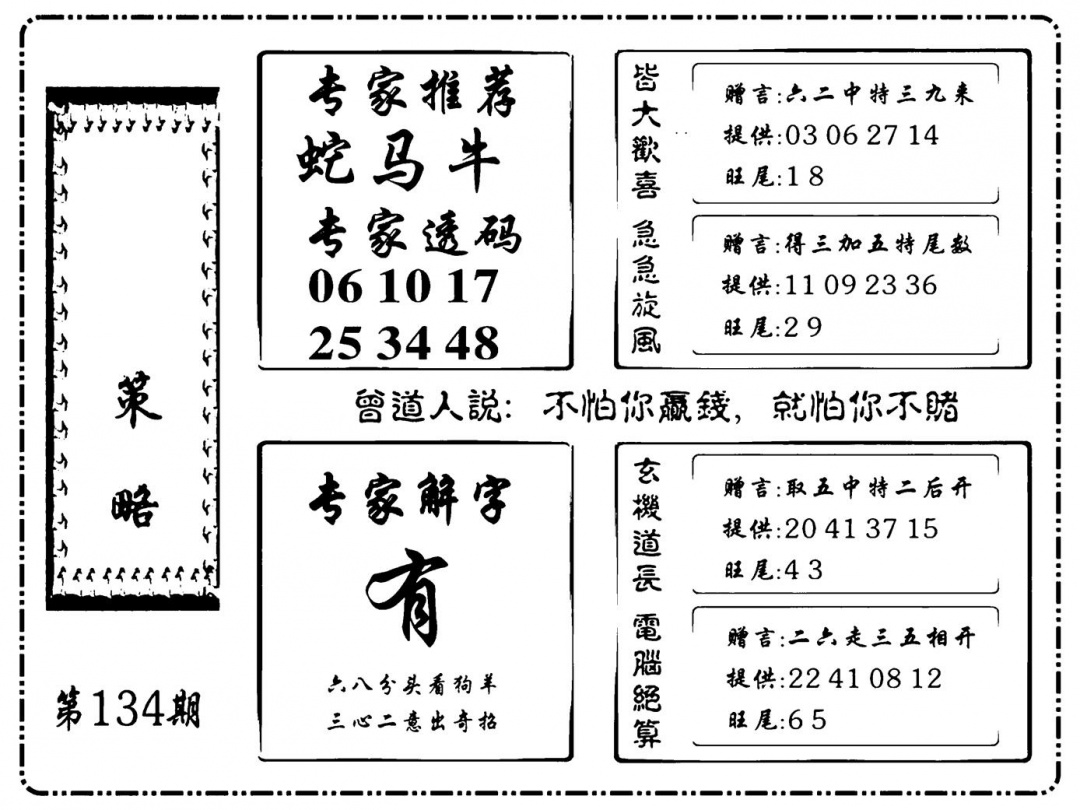 策略
第134期
专家推荐
蛇马牛
专家透码
06 10 17
25 34 48
皆大歡喜
赠言:六二中特三九来
提供:03 06 27 14
旺尾:1 8
急急旋風
赠言:得三加五特尾数
提供:11 09 23 36
旺尾:2 9
曾道人説: 不怕你贏錢, 就怕你不賭
专家解字
有
六八分头看狗羊
三心二意出奇招
玄機道長
赠言:取五中特二后开
提供:20 41 37 15
旺尾:4 3
電腦絕算
赠言:二六走三五相开
提供:22 41 08 12
旺尾:6 5